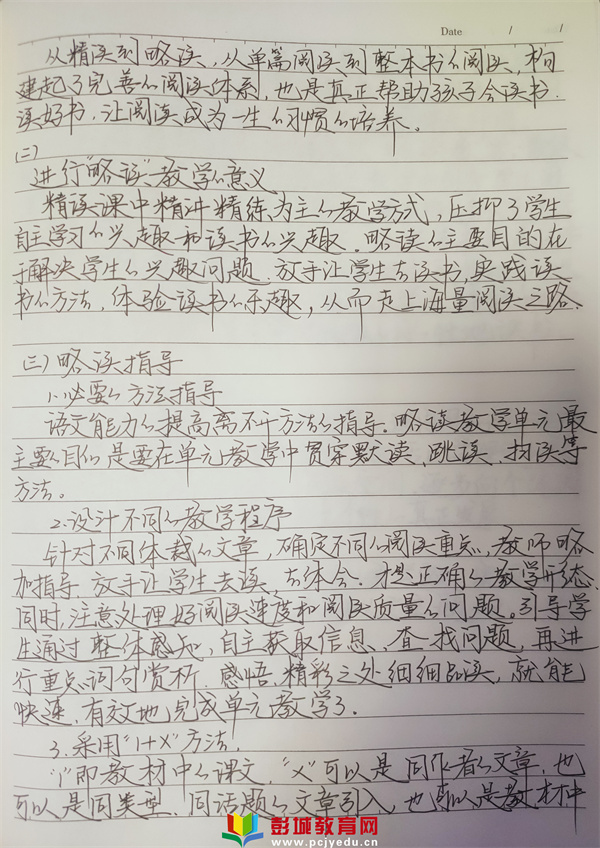 Date / /
从精读到略读，从单篇阅读到整本书的阅读，构
建起了完善的阅读体系，也是真正帮助孩子会读书.
读好书，让阅读成为一生的习惯的培养。
(二)
进行"略读"教学的意义
精读课中精讲精练为主的教学方式，压抑了学生
自主学习的兴趣和读书的兴趣.略读的主要目的在
于解决学生的兴趣问题.放手让学生去读书,实践读
书的方法，体验读书的乐趣，从而走上海量阅读之路.
(三)略读指导
1.必要的方法指导
语文能力的提高离不开方法的指导.略读教学单元最
主要目的是要在单元教学中贯穿默读、跳读、扫读等
方法。
2.设计不同的教学程序
针对不同体裁的文章，确定不同的阅读重点，教师略
加指导.放手让学生去读、去体会.才是正确的教学形态.
同时,注意处理好阅读速度和阅读质量的问题。引导学
生通过整体感知，自主获取信息、查找问题，再进
行重点词句赏析.感悟.精彩之处细细品读，就能
快速、有效地完成单元教学了.
3.采用"1+X"方法.
"1"即教材中的课文."X"可以是同作者的文章.也
可以是同类型、同话题的文章引入，也可以是教材中
彭城教育网
www.pcjyedu.cn